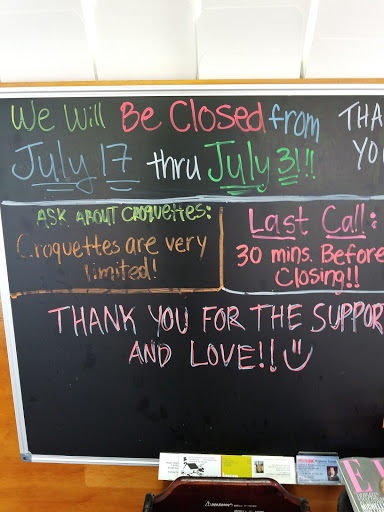 We Will Be Closed from
July 17 thru July 31!!
THA
YO
ASK ABOUT CROQUETTES:
Croquettes are very
limited!
Last Call:
30 mins. Before
Closing!!
THANK YOU FOR THE SUPPOR
AND LOVE!!
WARNING
E